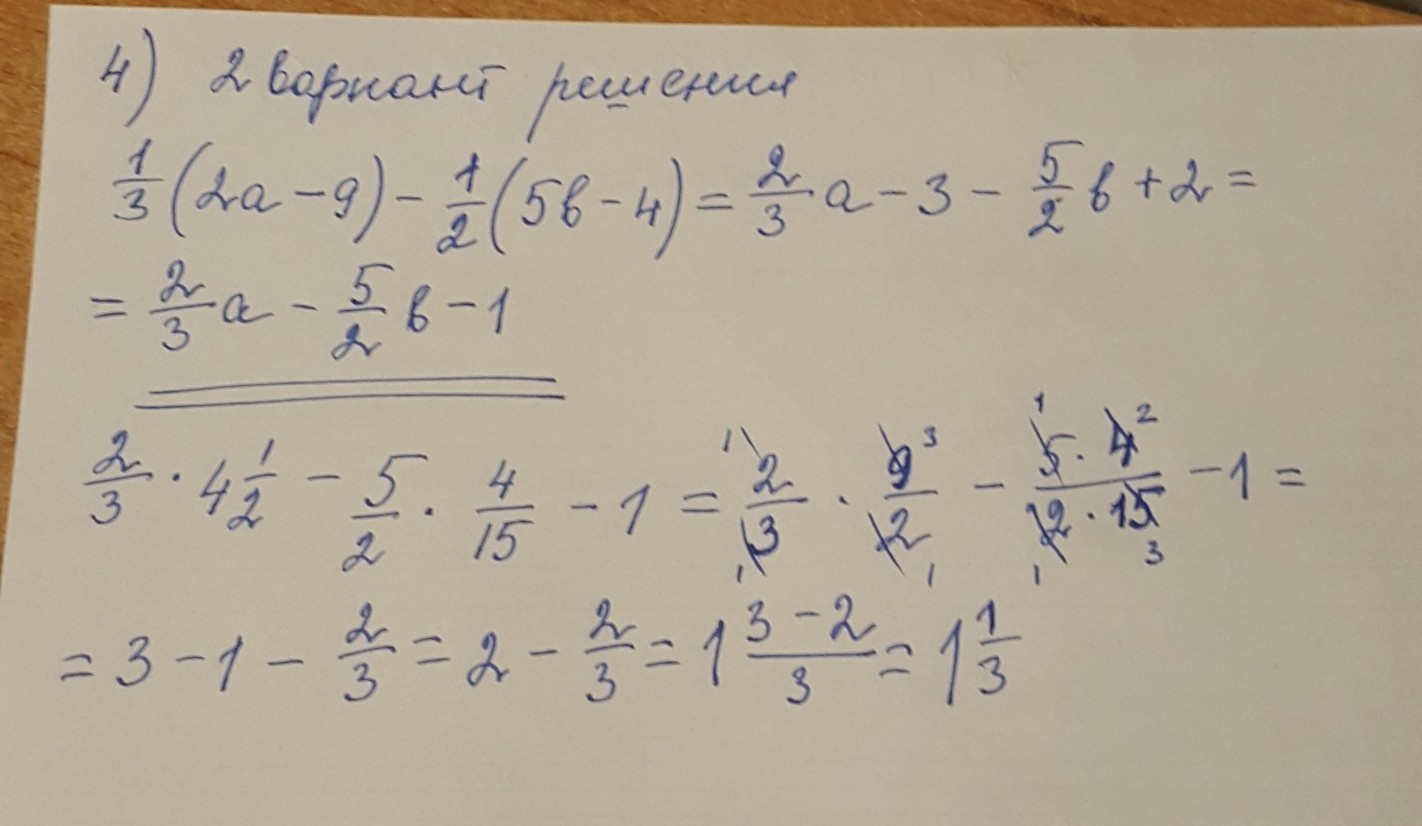 4) 2 вариант решения
1/3 (2a - 9) - 1/2 (5b - 4) = 2/3 a - 3 - 5/2 b + 2 =
= 2/3 a - 5/2 b - 1
2/3 · 4 1/2 - 5/2 · 4/15 - 1 = 2/3 · 9/2 - 5 · 4 / 2 · 15 - 1 =
= 3 - 1 - 2/3 = 2 - 2/3 = 1 3 - 2 / 3 = 1 1/3